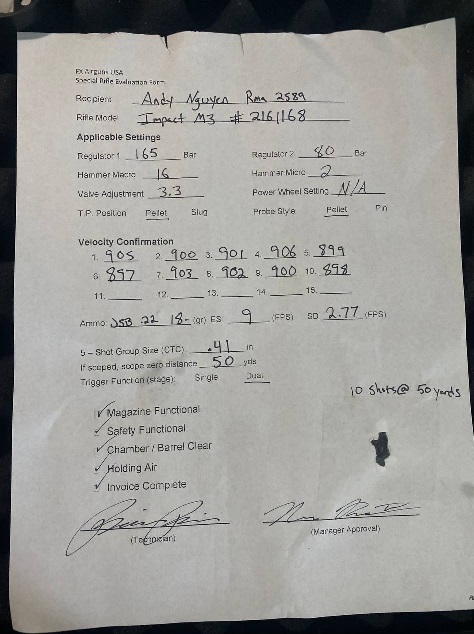 FX Airguns USA
Special Rifle Evaluation Form
Recipient Andy Nguyen Rma 2589
Rifle Model Impact M3 # 2161168
Applicable Settings
Regulator 1 165 Bar Regulator 2 80 Bar
Hammer Macro 16 Hammer Micro 2
Valve Adjustment 3.3 Power Wheel Setting N/A
T.P. Position Pellet Slug Probe Style Pellet Pin
Velocity Confirmation
1. 905 2. 900 3. 901 4. 906 5. 899
6. 897 7. 903 8. 902 9. 900 10. 898
11. 12. 13. 14. 15.
Ammo JSB .22 18- (gr) ES 9 (FPS) SD 2.77 (FPS)
5 – Shot Group Size (CTC) .41 in
If scoped, scope zero distance 50 yds
Trigger Function (stage): Single Dual
10 Shots @ 50 yards
✓ Magazine Functional
✓ Safety Functional
✓ Chamber / Barrel Clear
✓ Holding Air
✓ Invoice Complete
(Technician) (Manager Approval)